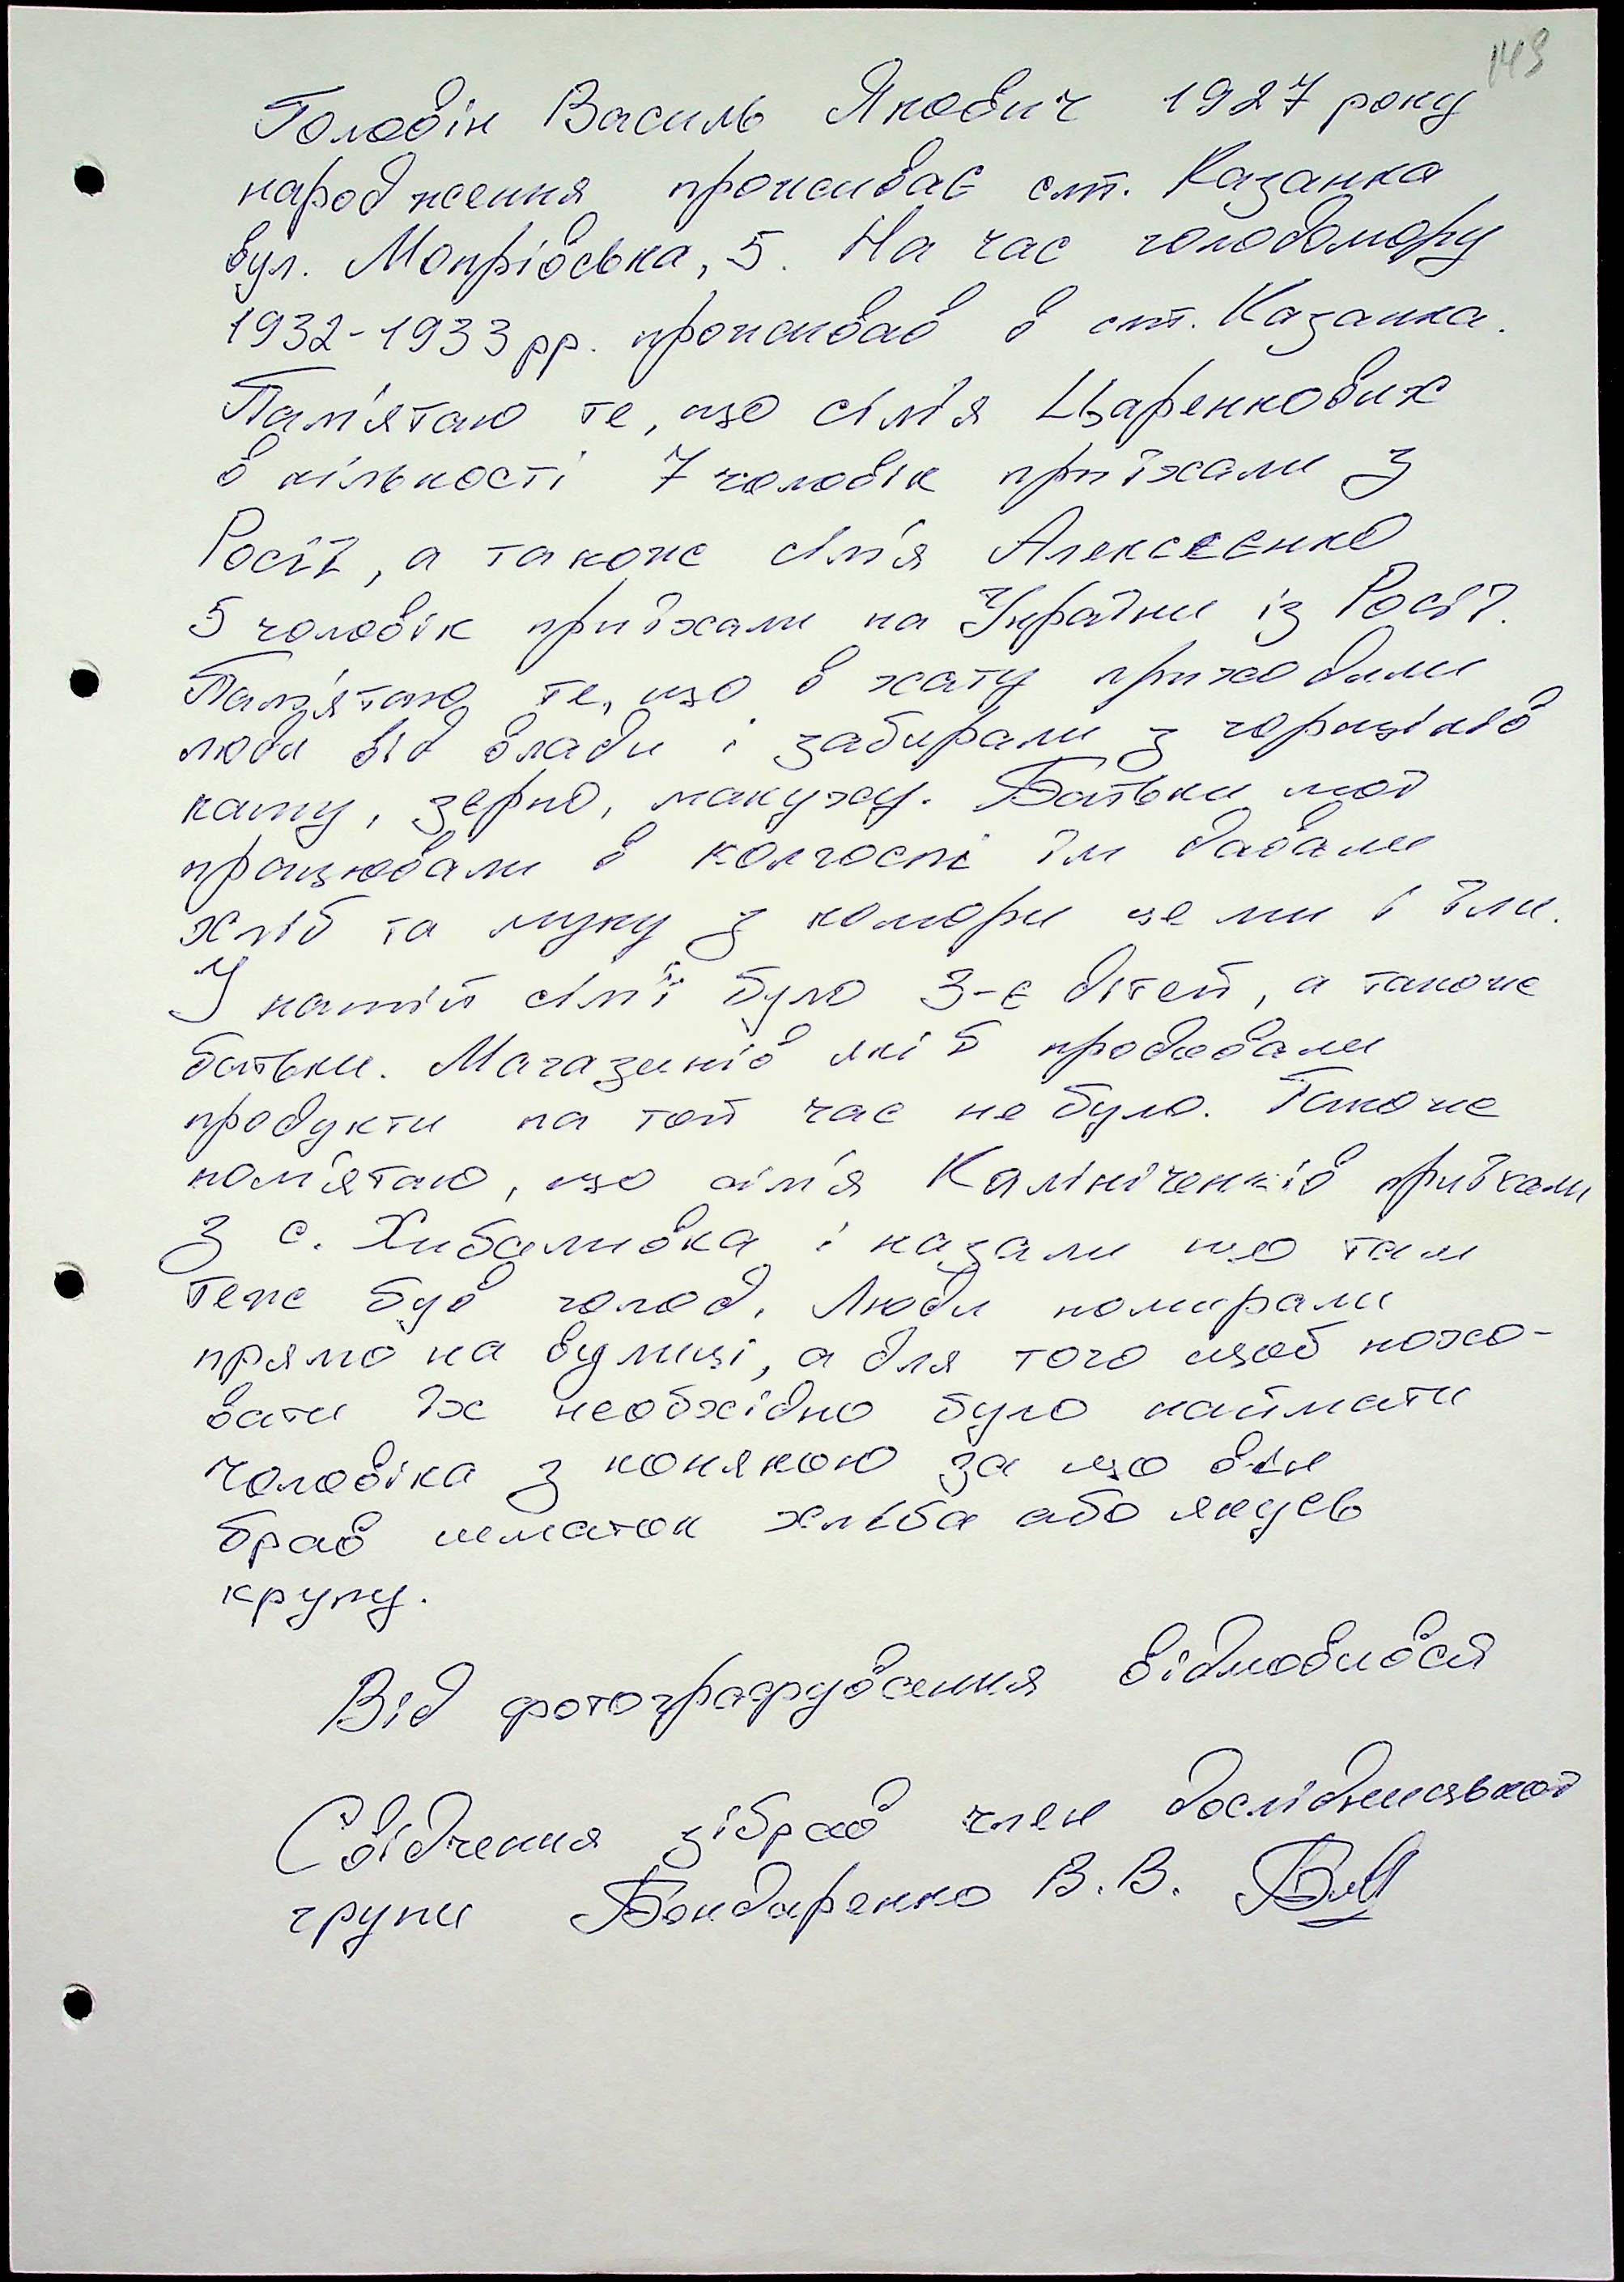 143
Головін Василь Якович 1927 року
народження проживає смт. Казанка
вул. Мопрівська, 5. На час голодомору
1932-1933 рр. проживав в смт. Казанка.
Пам'ятаю те, що сім'я Царенкових
в кількості 7 чоловік приїхали з
Росії, а також сім'я Алексеєнко
5 чоловік приїхали на Україну із Росії.
Пам'ятаю те, що в хату приходили
люди від влади і забирали з горщиків
кашу, зерно, макуху. Батьки мої
працювали в колгоспі їм давали
хліб та муку з комори це ми і їли.
У нашій сім'ї було 3-є дітей, а також
батьки. Магазинів які б продавали
продукти на той час не було. Також
пам'ятаю, що сім'я Калініченків приїхали
з с. Хибалівка і казали що там
теж був голод. Люди помирали
прямо на вулиці, а для того щоб похо-
вати їх необхідно було наймати
чоловіка з конякою за що він
брав шматок хліба або якусь
крупу.
Від фотографування відмовився
Свідчення зібрав член дослідницької
групи Бондаренко В.В.